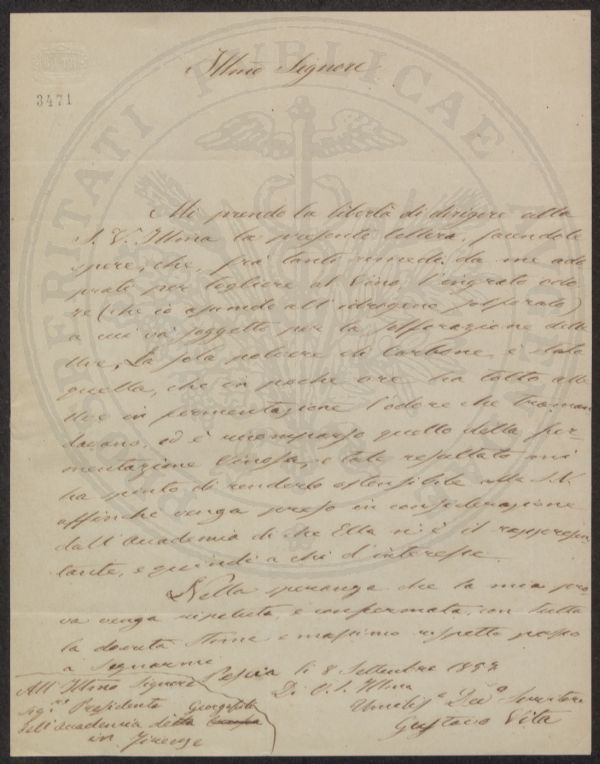 Illmo Signore
3471
Mi prendo la libertà di dirigere alla
S. V. Illma la presente lettera, facendole
che, fra tanti rimedi da me ado
prati per togliere al Vino l'ingrato odo
re (che io all'idrogeno solforato)
a cui va soggetto per la solforazione delle
Uve, La sola polvere di Carbone è stata
quella, che in poche ore ha tolto alle
Uve in fermentazione l'odore che traman
davano, ed è ricomparso quello della fer
mentazione Vinosa, e tale resultato mi
ha spinto di renderlo ostensibile alla S. V.
affinchè venga preso in considerazione
dall'Accademia di che Ella n'è il rappresen
tante, e quindi a chi d'interesse.
Nella speranza che la mia pro
va venga ripetuta, e confermata, con tutta
la dovuta stima e massimo rispetto passo
a segnarmi
Pescia li 8 Settembre 185
Di V. S. Illma
Servitore
Gustavo Vita
All'Illmo Signore
Sig.re Presidente Georgofili
dell'Accademia della
in Firenze
PUBLICAE